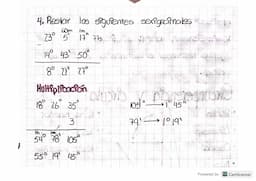 4. Restar los siguientes sexagesimales
23° 5' 17"
14° 43' 50"
8° 21' 27"
Multiplicación
18° 26' 35"
3
54° 78' 105"
55° 19' 45"
105" → 1' 45"
79' → 1° 19'
Powered by CamScanner